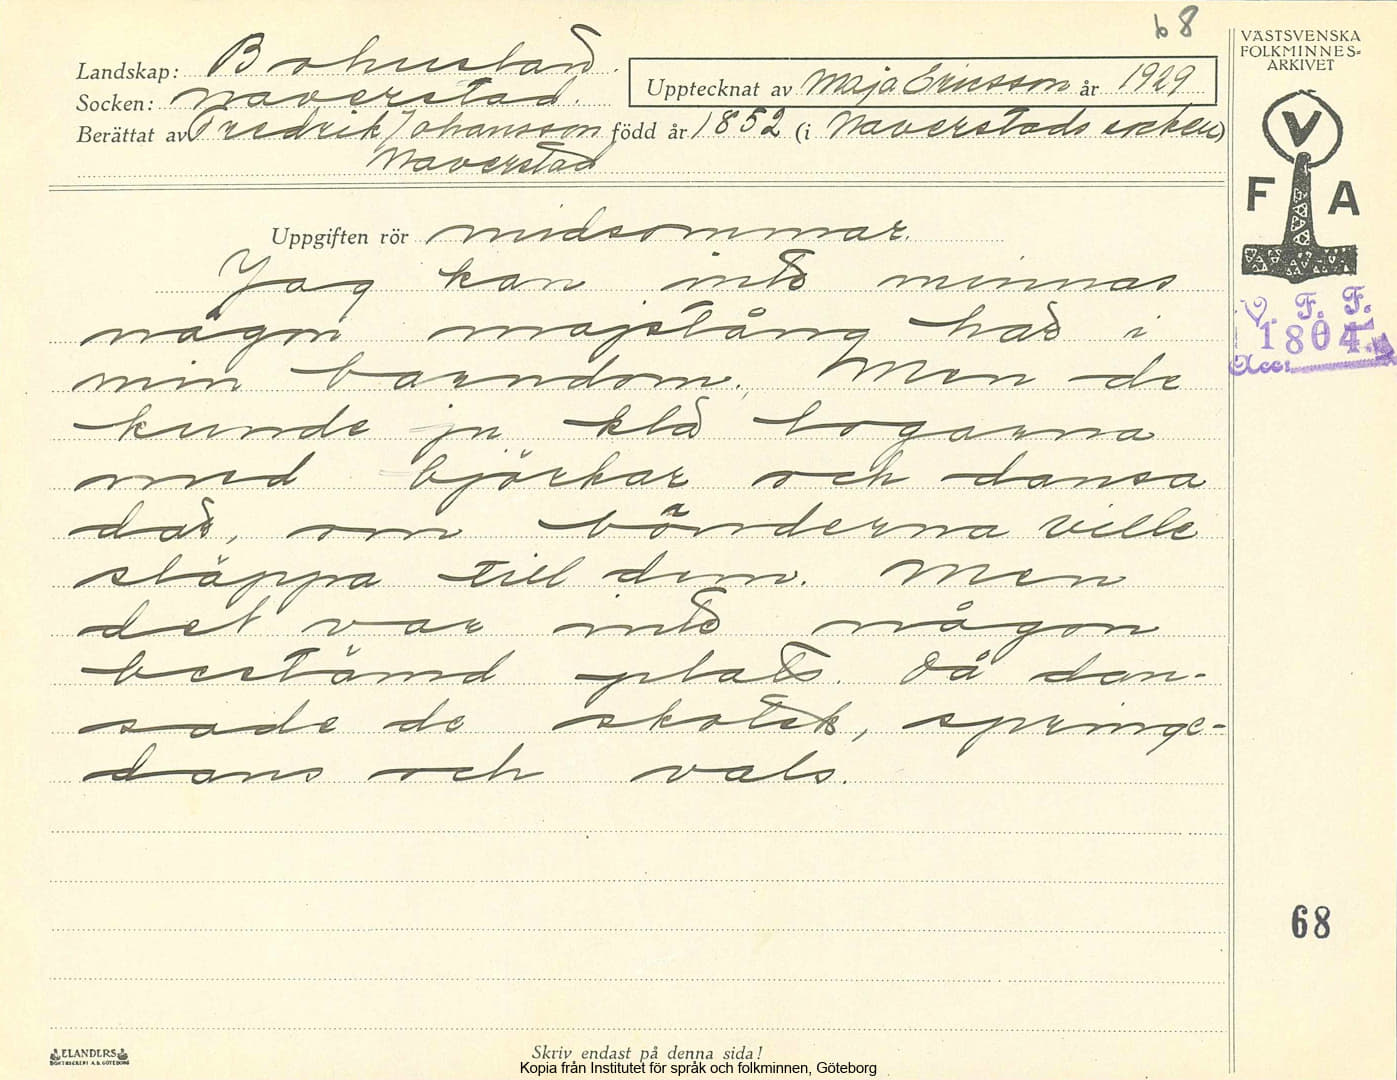 68
VÄSTSVENSKA
FOLKMINNES=
ARKIVET
Landskap: Bohuslän.
Upptecknat av Maja Ericsson år 1929
Socken: Naverstad.
Berättat av Fredrik Johansson född år 1852 (i Naverstads socken)
Naverstad
V
F A
Uppgiften rör midsommar.
Jag kan inte minnas
någon majstång här i
min barndom. Men de
kunde ju klä logarna
med björkar och dansa
där, om bönderna ville
släppa till dem. Men
det var inte någon
bestämd plats. Då dan-
sade de skotsk, springe-
dans och vals.
V. F. F.
1804
Acc:
68
ELANDERS
BOKTRYCKERI A.B. GÖTEBORG
Skriv endast på denna sida!
Kopia från Institutet för språk och folkminnen, Göteborg